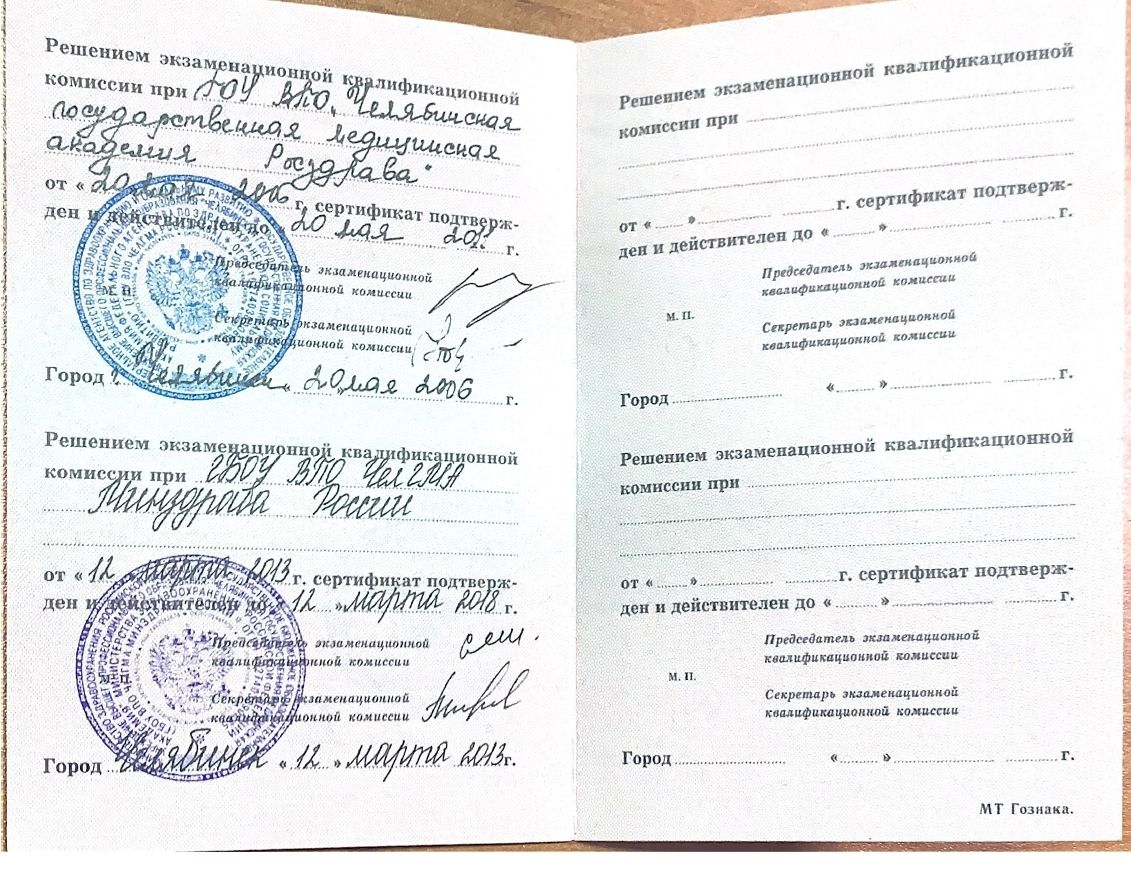 Решением экзаменационной квалификационной
комиссии при ГОУ ВПО „Челябинская
государственная медицинская
академия Росздрава"
от « 20 мая 2006 г. сертификат подтверж-
ден и действителен до « 20 мая г.
Председатель экзаменационной
квалификационной комиссии
М. П.
Секретарь экзаменационной
квалификационной комиссии
Город г. Челябинск « 20 » мая 2006 г.
Решением экзаменационной квалификационной
комиссии при ГБОУ ВПО ЧелГМА
Минздрава России
от « 12 » марта 2013 г. сертификат подтверж-
ден и действителен до « 12 » марта 2018 г.
Председатель экзаменационной
квалификационной комиссии
М. П.
Секретарь экзаменационной
квалификационной комиссии
Город Челябинск « 12 » марта 2013 г.
Решением экзаменационной квалификационной
комиссии при
от « » г. сертификат подтверж-
ден и действителен до « » г.
Председатель экзаменационной
квалификационной комиссии
М. П.
Секретарь экзаменационной
квалификационной комиссии
Город « » г.
Решением экзаменационной квалификационной
комиссии при
от « » г. сертификат подтверж-
ден и действителен до « » г.
Председатель экзаменационной
квалификационной комиссии
М. П.
Секретарь экзаменационной
квалификационной комиссии
Город « » г.
МТ Гознака.